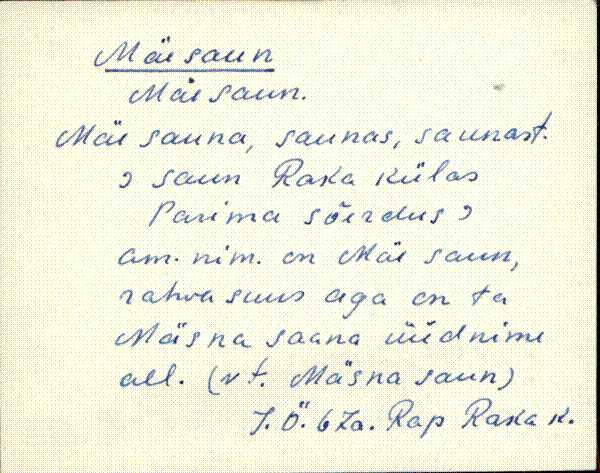 Mäe saun
Mäe saun.
Mäe sauna, saunas, saunast.
saun Raka külas
Parima sõerdus
am. nim. on Mäe saun,
rahva suus aga on ta
Mäsna saana üüdnime
all. (vt. Mäsna saun)
J. Ö. 67a. Rap Raka k.